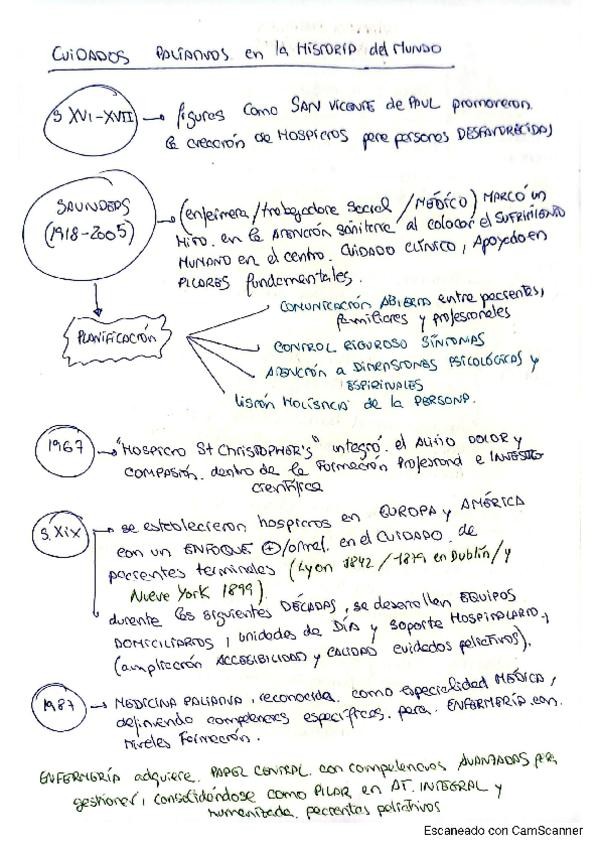 CUIDADOS PALIATIVOS en la HISTORIA del MUNDO
S XVI-XVII → figuras como SAN VICENTE de PAUL promoveron
la creación de HOSPICIOS para personas DESFAVORECIDAS
SAUNDERS
(1918-2005)
(enfermera/trabajadora social/MÉDICO) MARCÓ un
HITO en la ATENCIÓN sanitaria al colocar el SUFRIMIENTO
HUMANO en el centro. CUIDADO CLÍNICO, Apoyado en
PILARES fundamentales.
PLANIFICACIÓN
COMUNICACIÓN ABIERTA entre pacientes,
familiares y profesionales
CONTROL RIGUROSO SÍNTOMAS
ATENCIÓN A DIMENSIONES PSICOLÓGICAS y
ESPIRITUALES
Visión HOLÍSTICA de la PERSONA.
1967 → "HOSPICIO St CHRISTOPHER's" integró el ALIVIO DOLOR y
COMPASIÓN dentro de la Formación Profesional e INVESTIG
científica
S. XIX → se establecieron hospicios en EUROPA y AMÉRICA
con un ENFOQUE ⊕/ormal en el CUIDADO de
pacientes terminales (Lyon 1842 / 1879 en Dublín/y
Nueve York 1899).
durante los siguientes DÉCADAS, se desarrollan EQUIPOS
DOMICILIARIOS, unidades de DÍA y soporte HOSPITALARIO,
(ampliación ACCESIBILIDAD y CALIDAD cuidados paliativos).
1987 → MEDICINA PALIATIVA, reconocida como especialidad MÉDICA,
definiendo competencias específicas para ENFERMERÍA con
Niveles Formación.
ENFERMERÍA adquiere PAPEL CENTRAL con competencias AVANZADAS para
gestionar, consolidándose como PILAR en AT. INTEGRAL y
humanizada pacientes paliativos
Escaneado con CamScanner